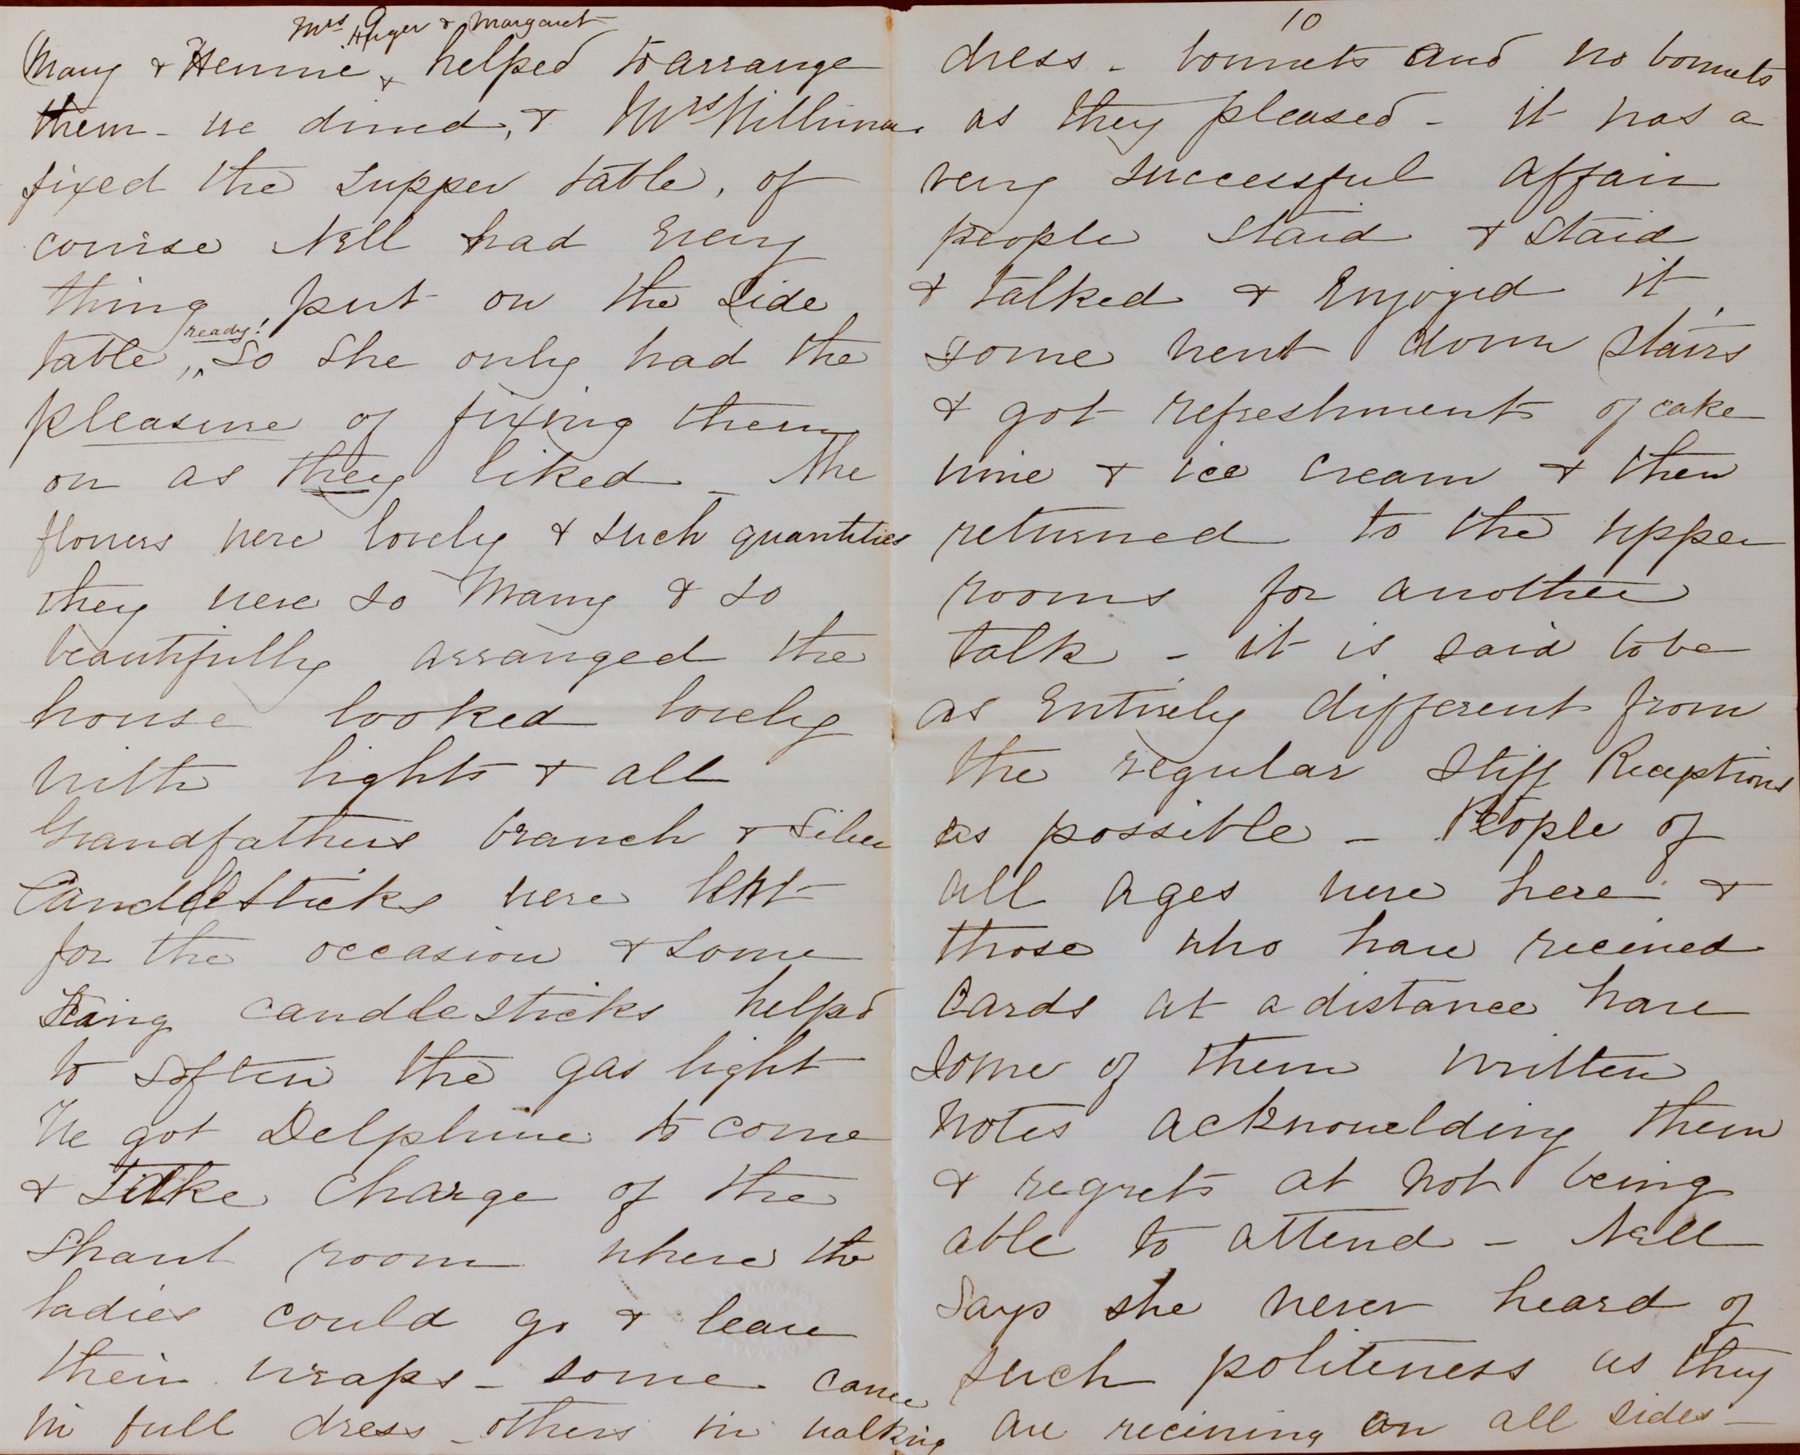 Mrs Huger & Margaret
Mary & Hennie & helped to arrange
them - we dined, & Mrs Williman
fixed the supper table, of
course Nell had every
thing, put on the side
ready!
table, so she only had the
pleasure of fixing them
on as they liked - The
flowers were lovely & such quantities
they were so many & so
beautifully arranged the
house looked lovely
with lights & all
Grandfathers branch & silver
Candlesticks were lent
for the occasion & some
candlesticks helped
to soften the gas light
We got Delphine to come
& take charge of the
shawl room where the
ladies could go & leave
their wraps - some came
in full dress - others in walking
10
dress - bonnets and no bonnets
as they pleased - it was a
very successful affair
people staid & staid
& talked & Enjoyed it,
some went down stairs
& got refreshments of cake
wine & ice cream & then
returned to the upper
rooms for another
talk - it is said to be
as Entirely different from
the regular stiff Receptions
as possible - People of
all ages were here &
those who have received
Cards at a distance have
some of them written
notes acknowelding them
& regrets at not being
able to attend - Nell
says she never heard of
such politeness as they
are receiving on all sides -